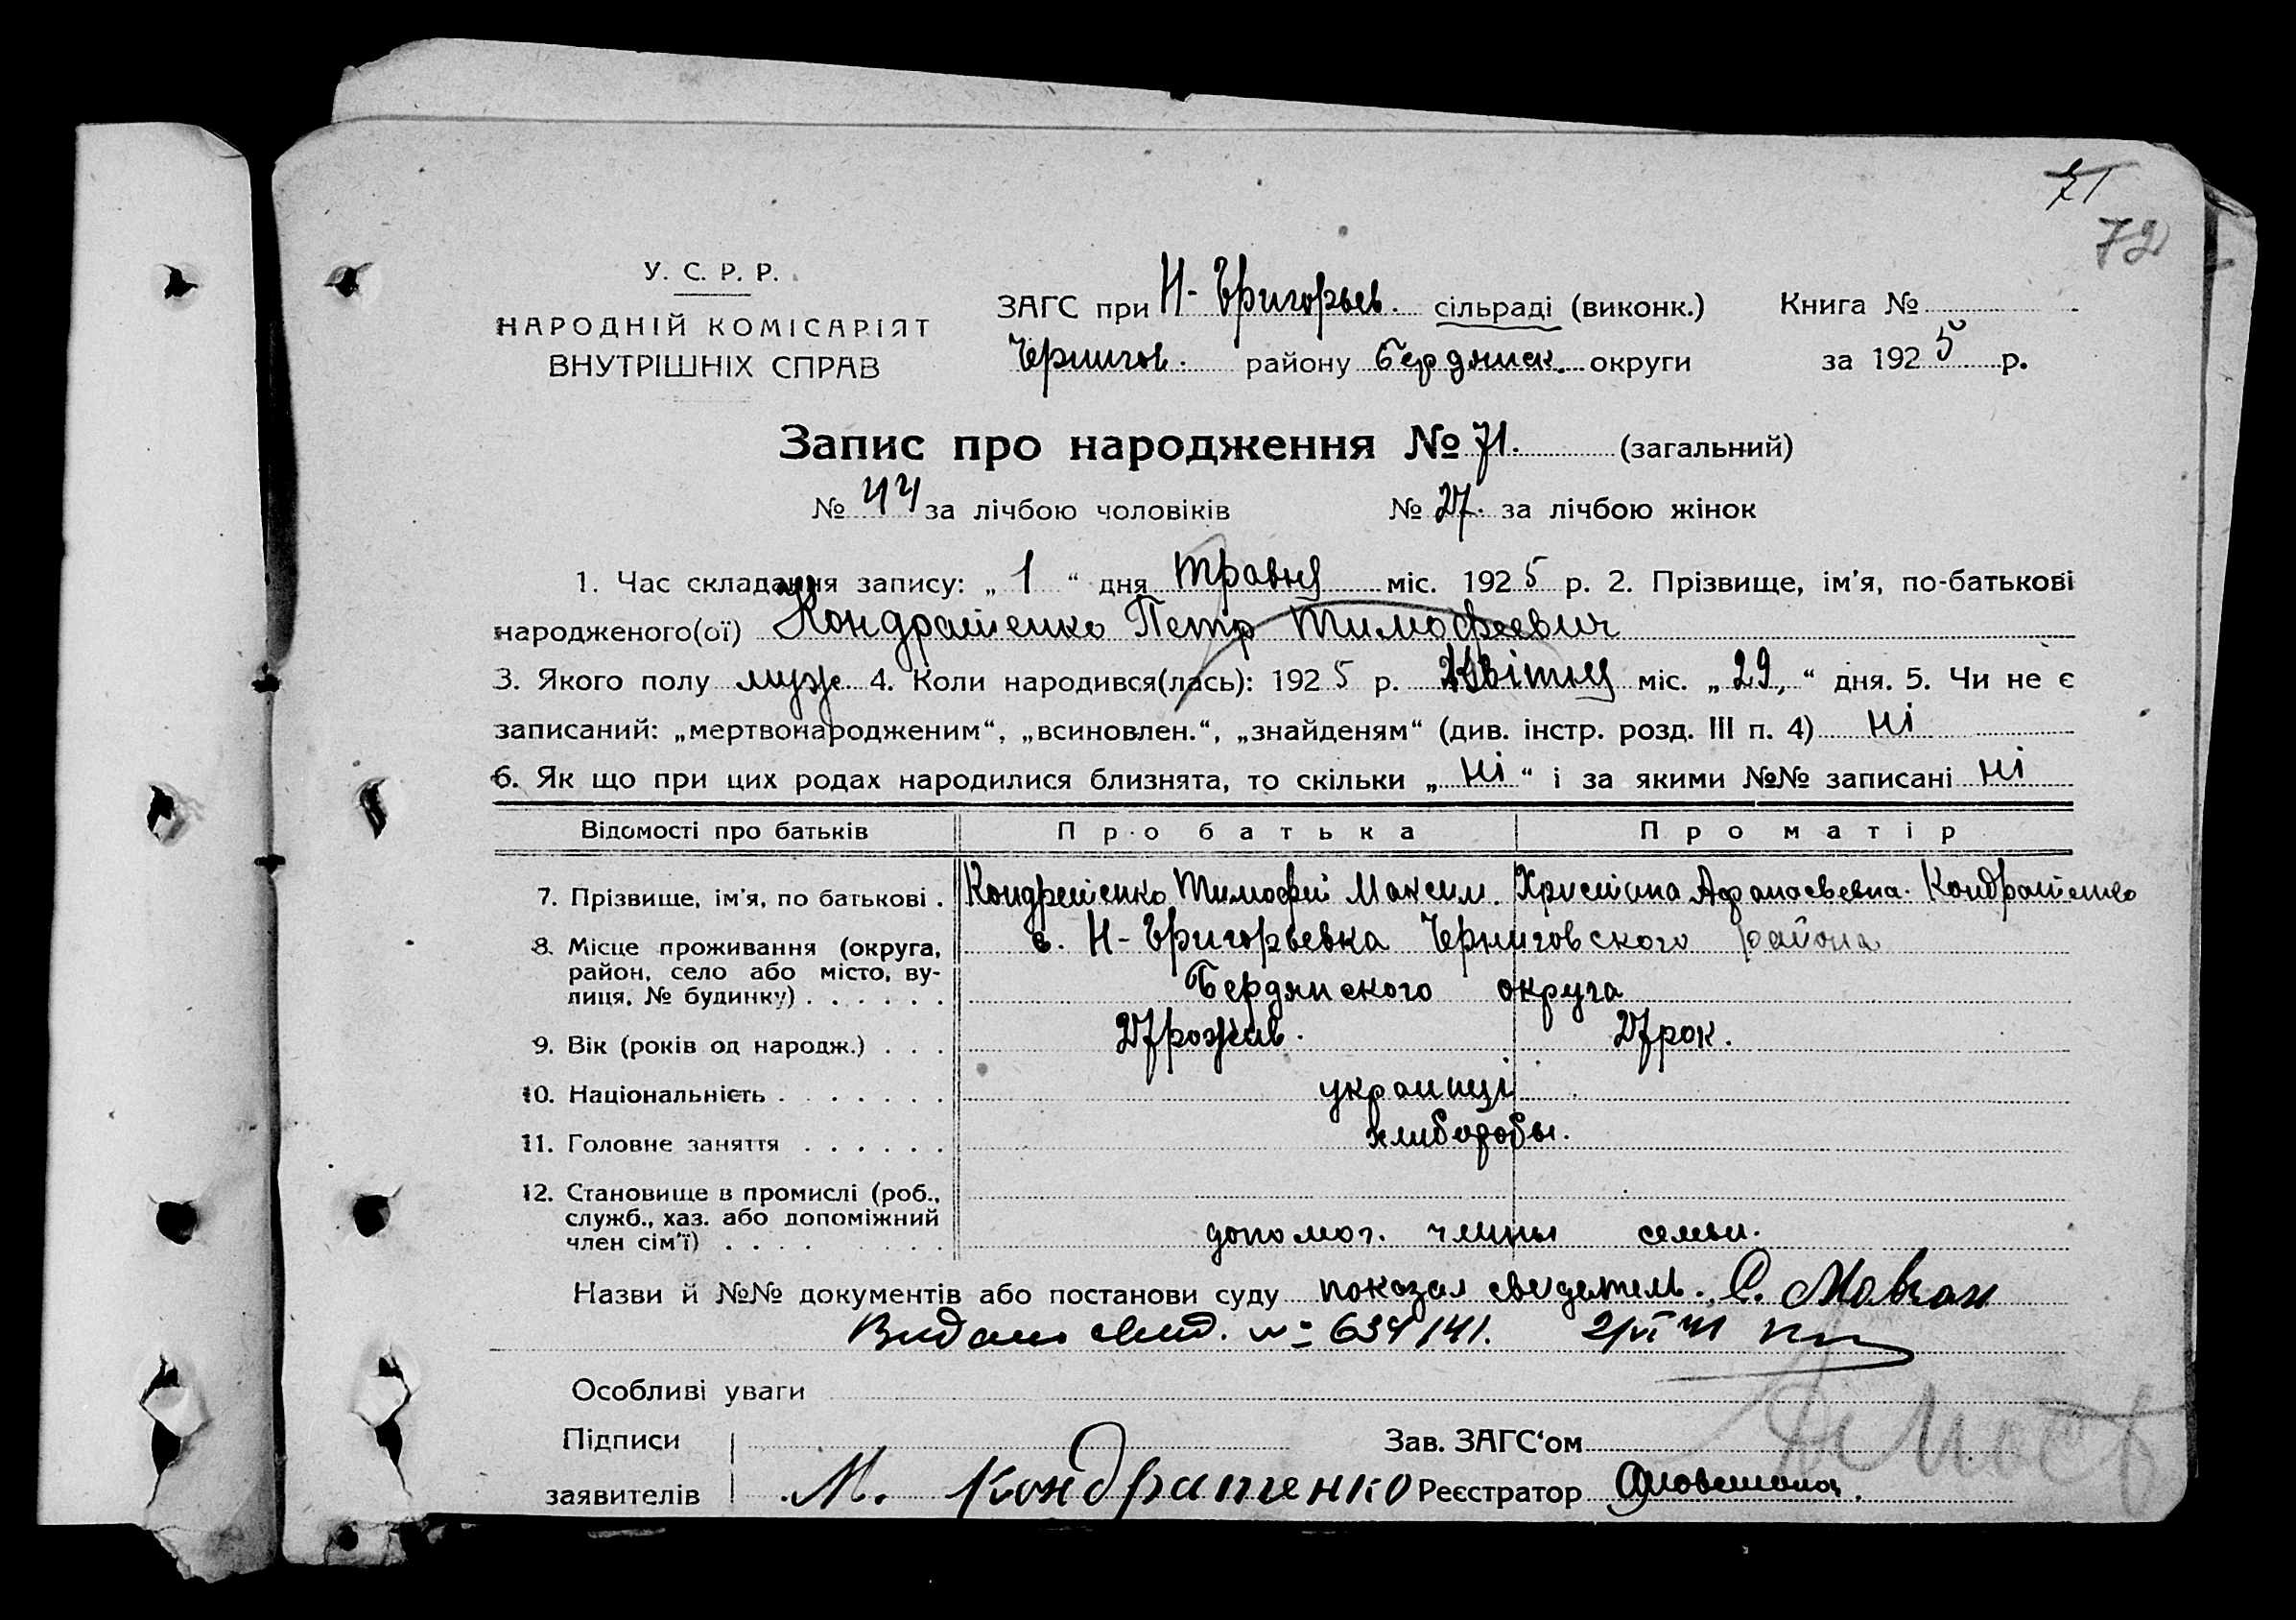 71
72
У. С. Р. Р.
НАРОДНІЙ КОМІСАРІЯТ
ВНУТРІШНІХ СПРАВ
ЗАГС при Н-Григорьев. сільраді (виконк.) Книга №
Чернигов. району Бердянск. округи за 1925 р.
Запис про народження № 71. (загальний)
№ 44 за лічбою чоловіків № 27. за лічбою жінок
1. Час складання запису: „ 1 “ дня травня міс. 1925 р. 2. Прізвище, ім'я, по-батькові
народженого(ої) Кондратенко Петр Тимофеевич
3. Якого полу муж. 4. Коли народився(лась): 1925 р. Квітня міс. „ 29, “ дня. 5. Чи не є
записаний: „мертвонародженим“, „всиновлен.“, „знайденям“ (див. інстр. розд. III п. 4) ні
6. Як що при цих родах народилися близнята, то скільки „ ні “ і за якими №№ записані ні
Відомості про батьків Про батька Про матір
7. Прізвище, ім'я, по батькові . Кондратенко Тимофей Максим. Христина Афанасьевна Кондратенко
8. Місце проживання (округа, с. Н-Григорьевка Черниговского района
район, село або місто, ву-
лиця, № будинку) . . . . . . Бердянского округа
9. Вік (років од народж.) . . . 27 рокив. 27 рок.
10. Національність . . . . . . . украинці
11. Головне заняття . . . . . . хлиборобы.
12. Становище в промислі (роб.,
служб., хаз. або допоміжний
член сім'ї) . . . . . . . . . допомог. члины семьи.
Назви й №№ документів або постанови суду показал свидетель. С.
Видано свид. № 634141. 2/VI 41
Особливі уваги
Підписи Зав. ЗАГС'ом
заявителів М. Кондратенко Реєстратор